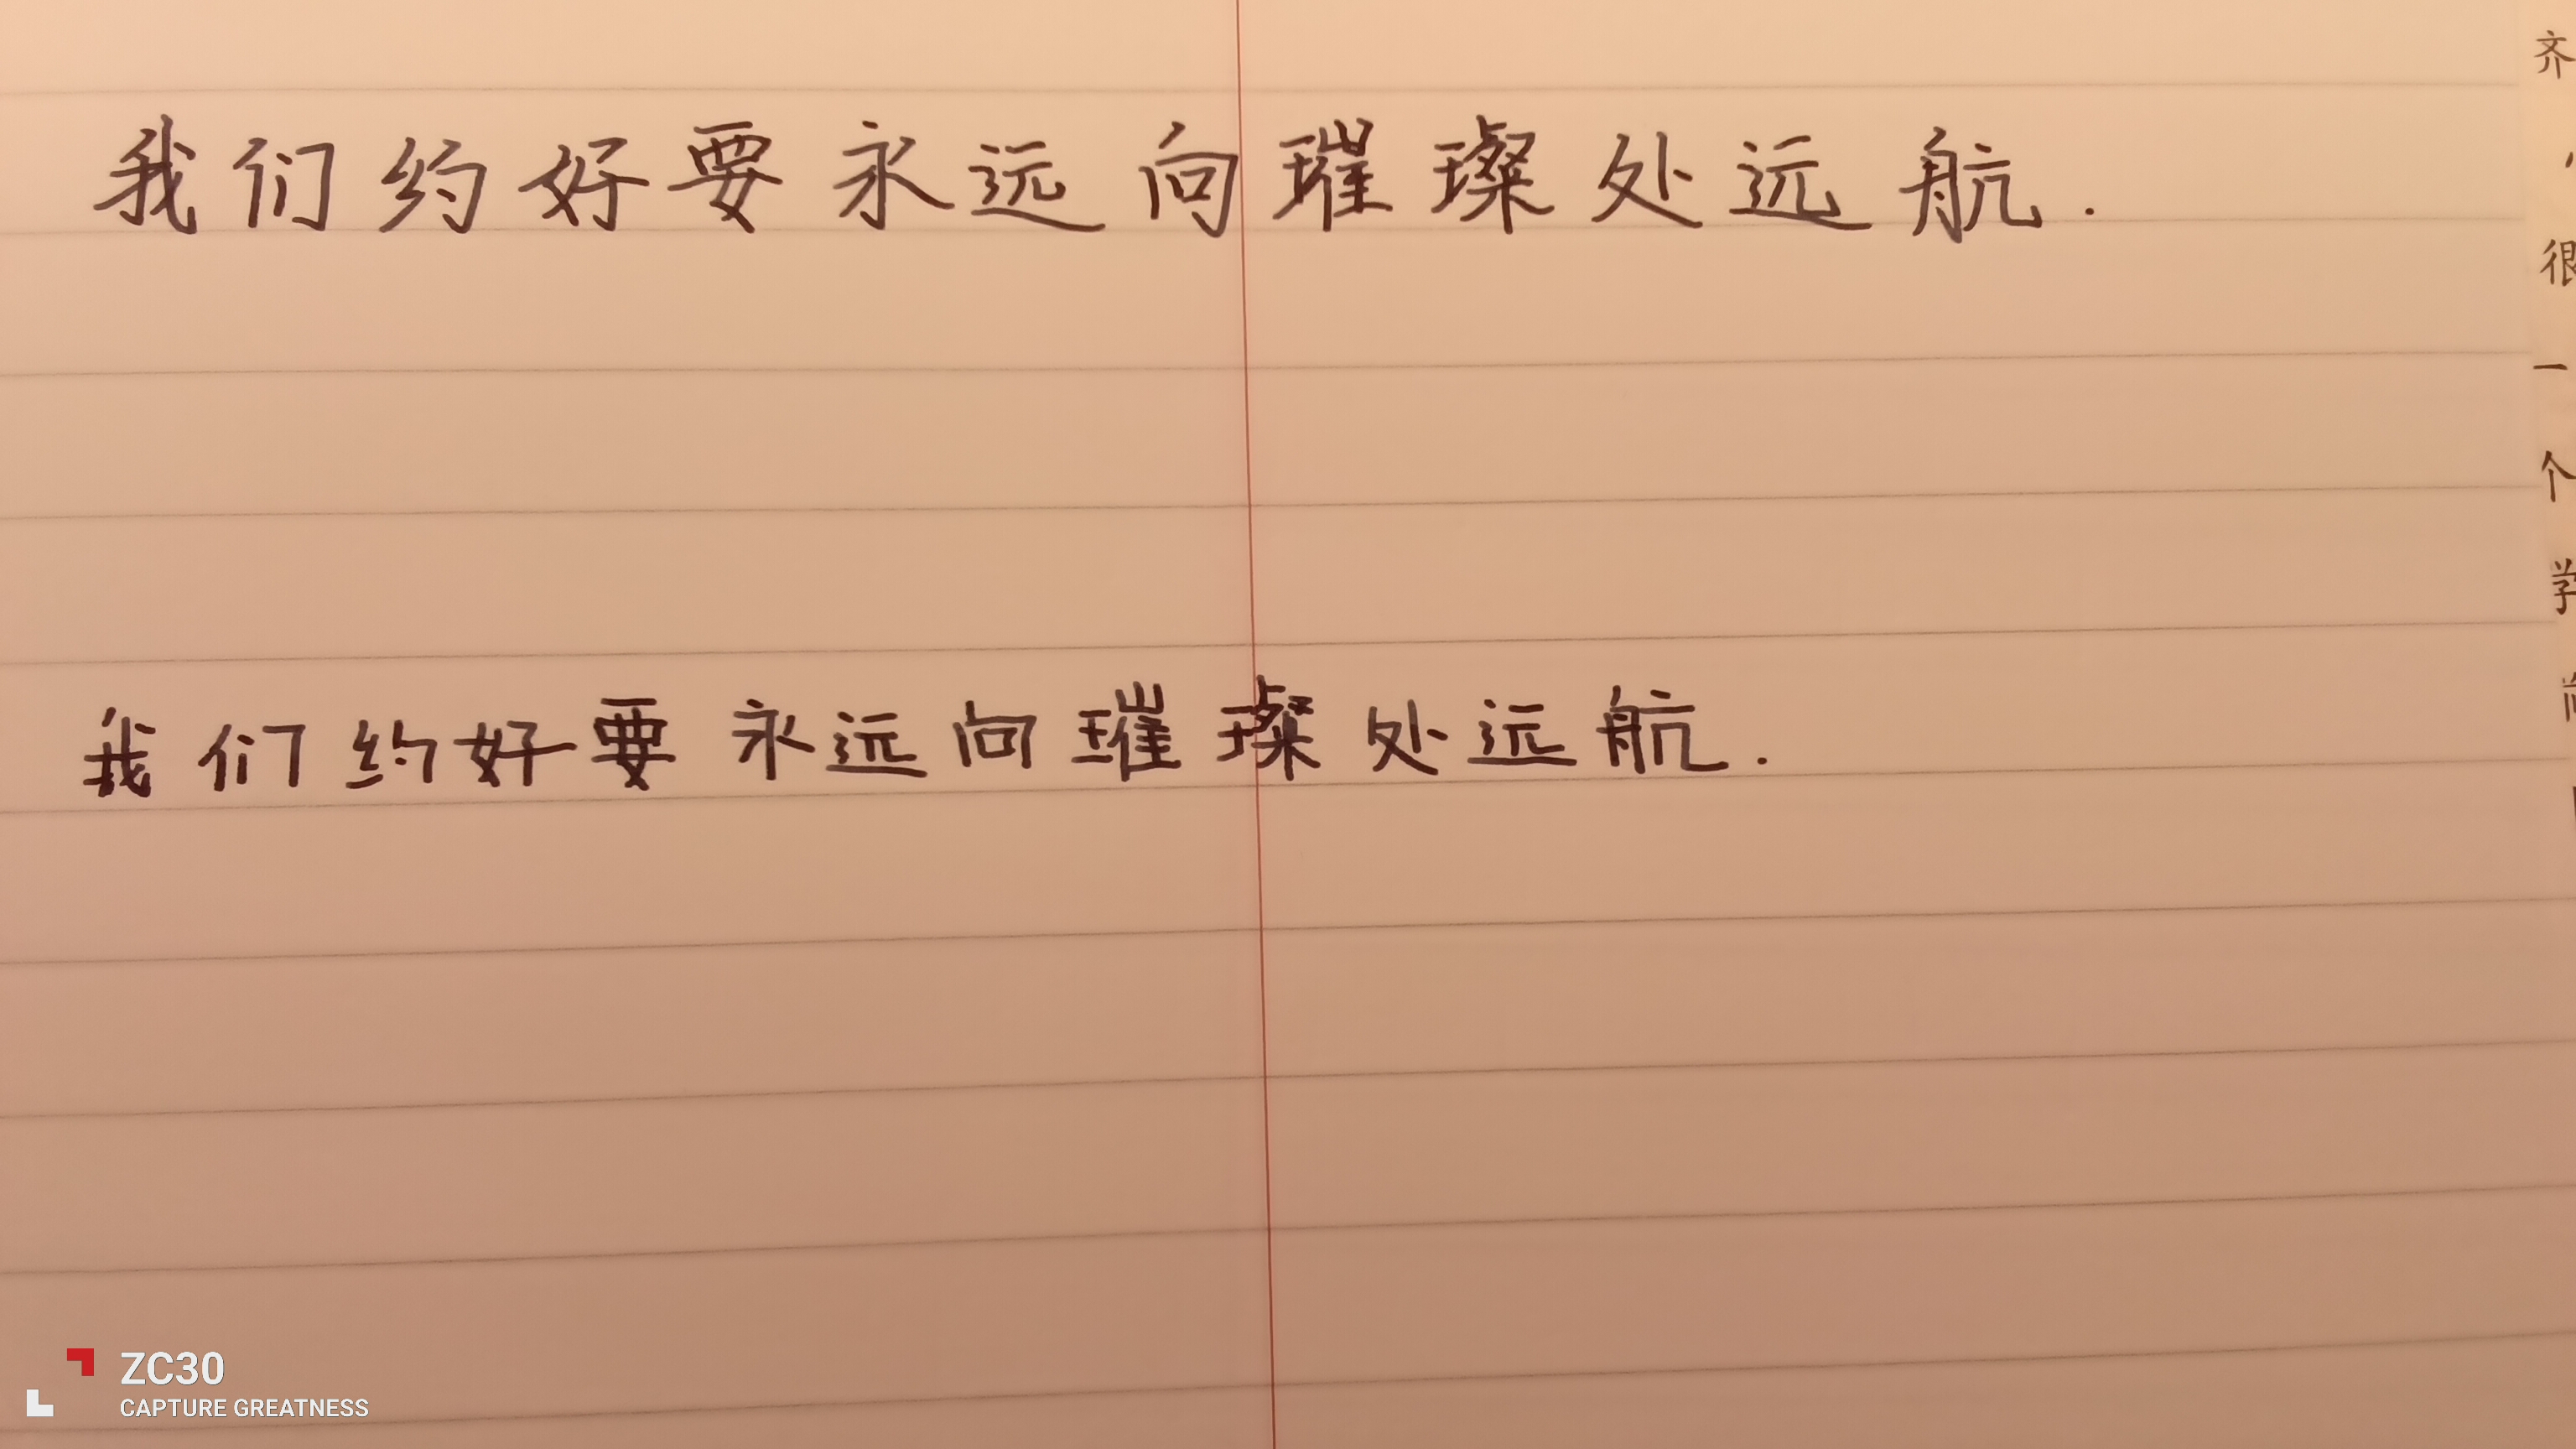 我们约好要永远向璀璨处远航.
我们约好要永远向璀璨处远航.
齐
很
一
个
学
ZC30
CAPTURE GREATNESS